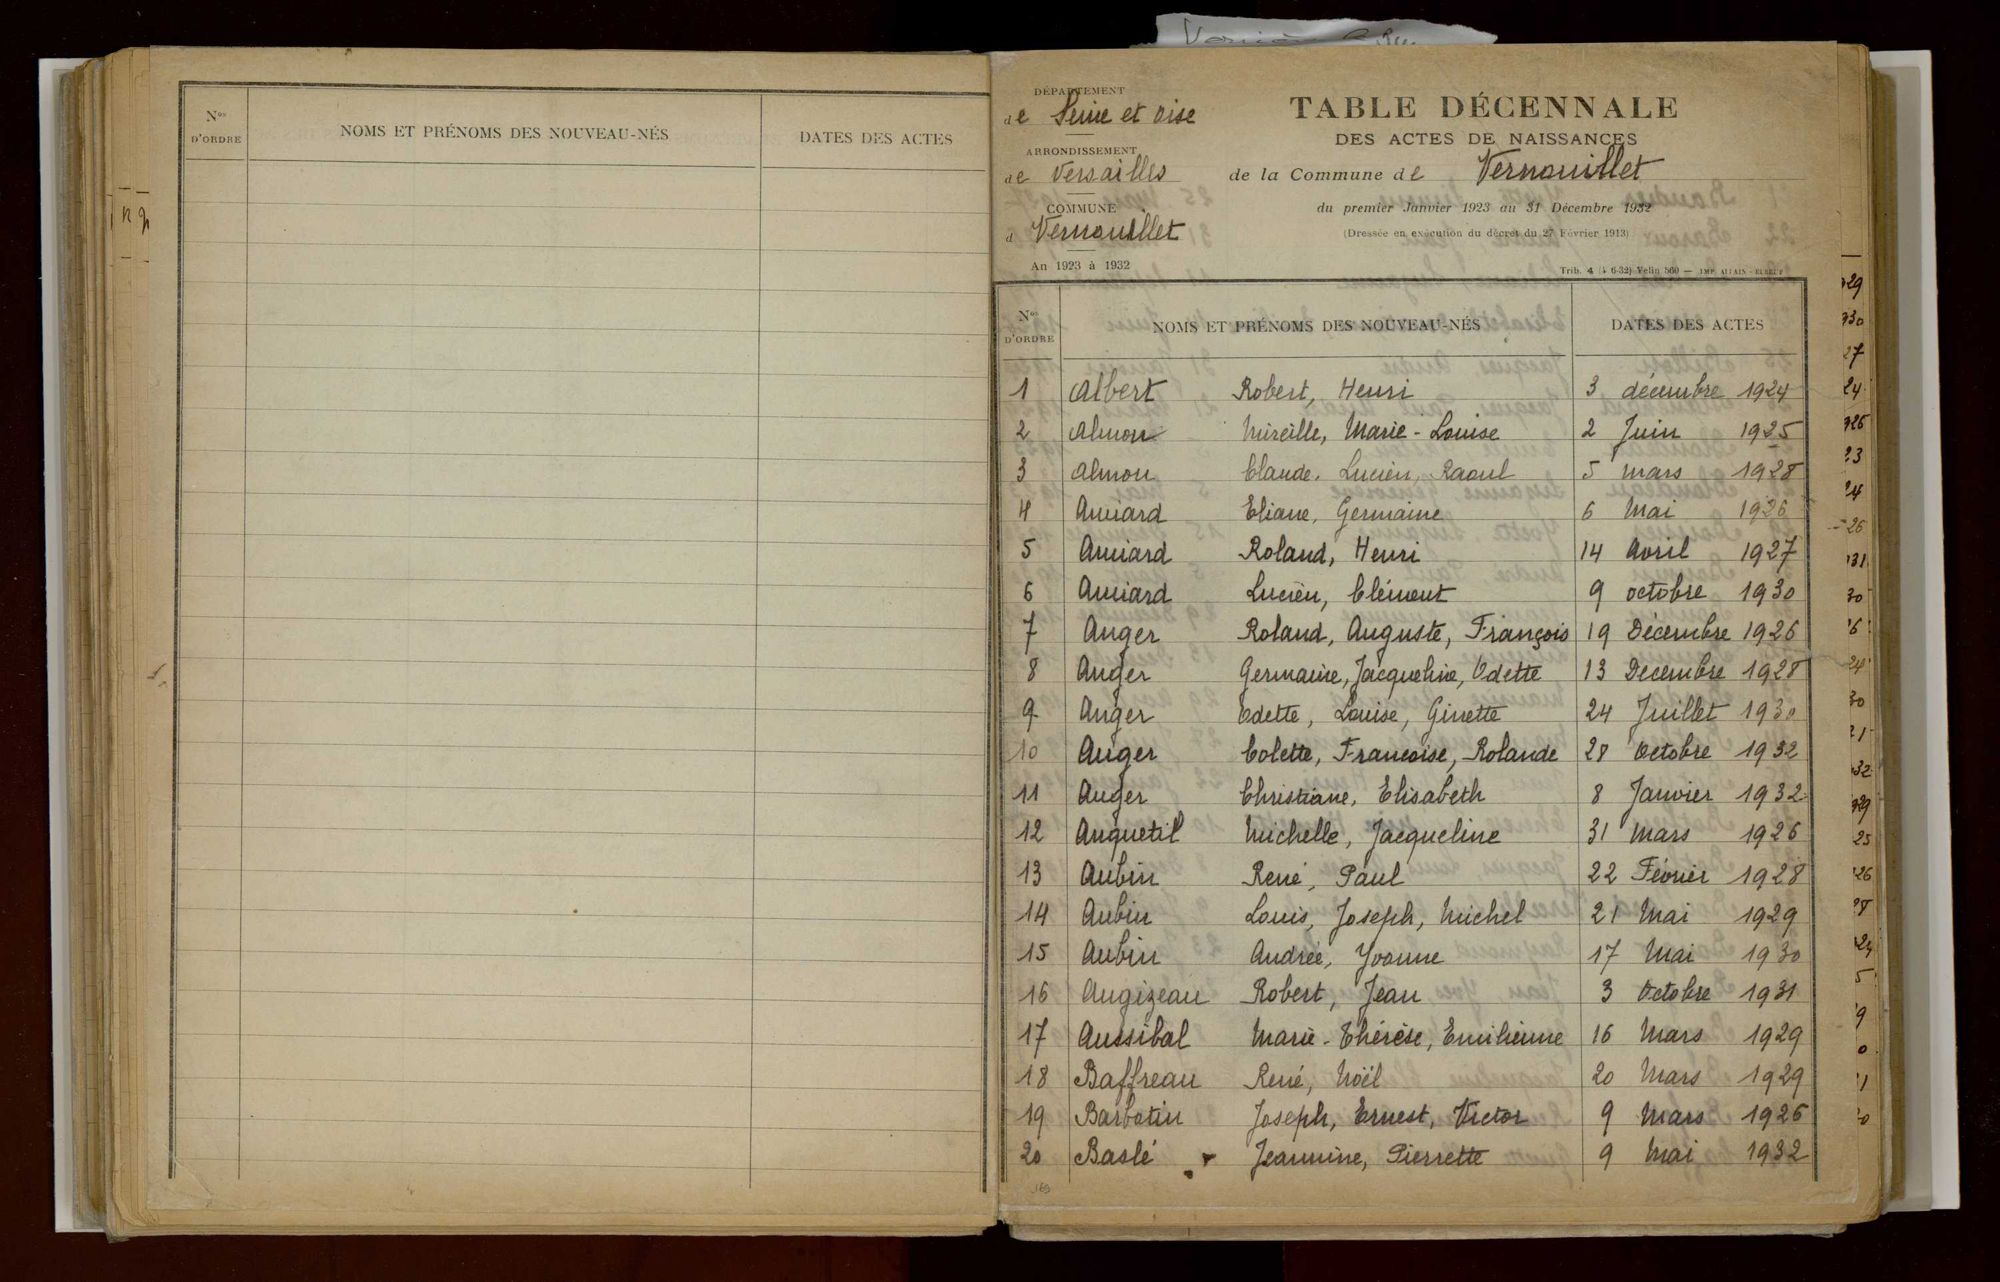 Nos
D'ORDRE
NOMS ET PRÉNOMS DES NOUVEAU-NÉS
DATES DES ACTES
DÉPARTEMENT
de Seine et Oise
ARRONDISSEMENT
de Versailles
COMMUNE
d Vernouillet
An 1923 à 1932
TABLE DÉCENNALE
DES ACTES DE NAISSANCES
de la Commune de Vernouillet
du premier Janvier 1923 au 31 Décembre 1932
(Dressée en exécution du décret du 27 Février 1913)
Trib. 4 (4 6-32) Velin 560 — IMP. ALLAIN - ELBEUF
Nos
D'ORDRE
NOMS ET PRÉNOMS DES NOUVEAU-NÉS
DATES DES ACTES
1 Albert Robert, Henri 3 décembre 1924
2 Almon Mireille, Marie-Louise 2 Juin 1925
3 Almon Claude, Lucien, Raoul 5 mars 1928
4 Amiard Eliane, Germaine 6 Mai 1926
5 Amiard Roland, Henri 14 Avril 1927
6 Amiard Lucien, Clément 9 octobre 1930
7 Anger Roland, Auguste, François 19 Décembre 1926
8 Anger Germaine, Jacqueline, Odette 13 Décembre 1928
9 Anger Odette, Louise, Ginette 24 Juillet 1930
10 Auger Colette, Francoise, Rolande 28 Octobre 1932
11 Auger Christiane, Elisabeth 8 Janvier 1932
12 Anquetil Michelle, Jacqueline 31 Mars 1926
13 Aubin René, Paul 22 Février 1928
14 Aubin Louis, Joseph, Michel 21 Mai 1929
15 Aubin Andrée, Yvonne 17 Mai 1930
16 Augizeau Robert, Jean 3 Octobre 1931
17 Aussibal Marie-Thérèse, Emilienne 16 Mars 1929
18 Baffreau René, Noël 20 Mars 1929
19 Barbotin Joseph, Ernest, Victor 9 Mars 1926
20 Baslé Jeannine, Pierrette 9 Mai 1932
169